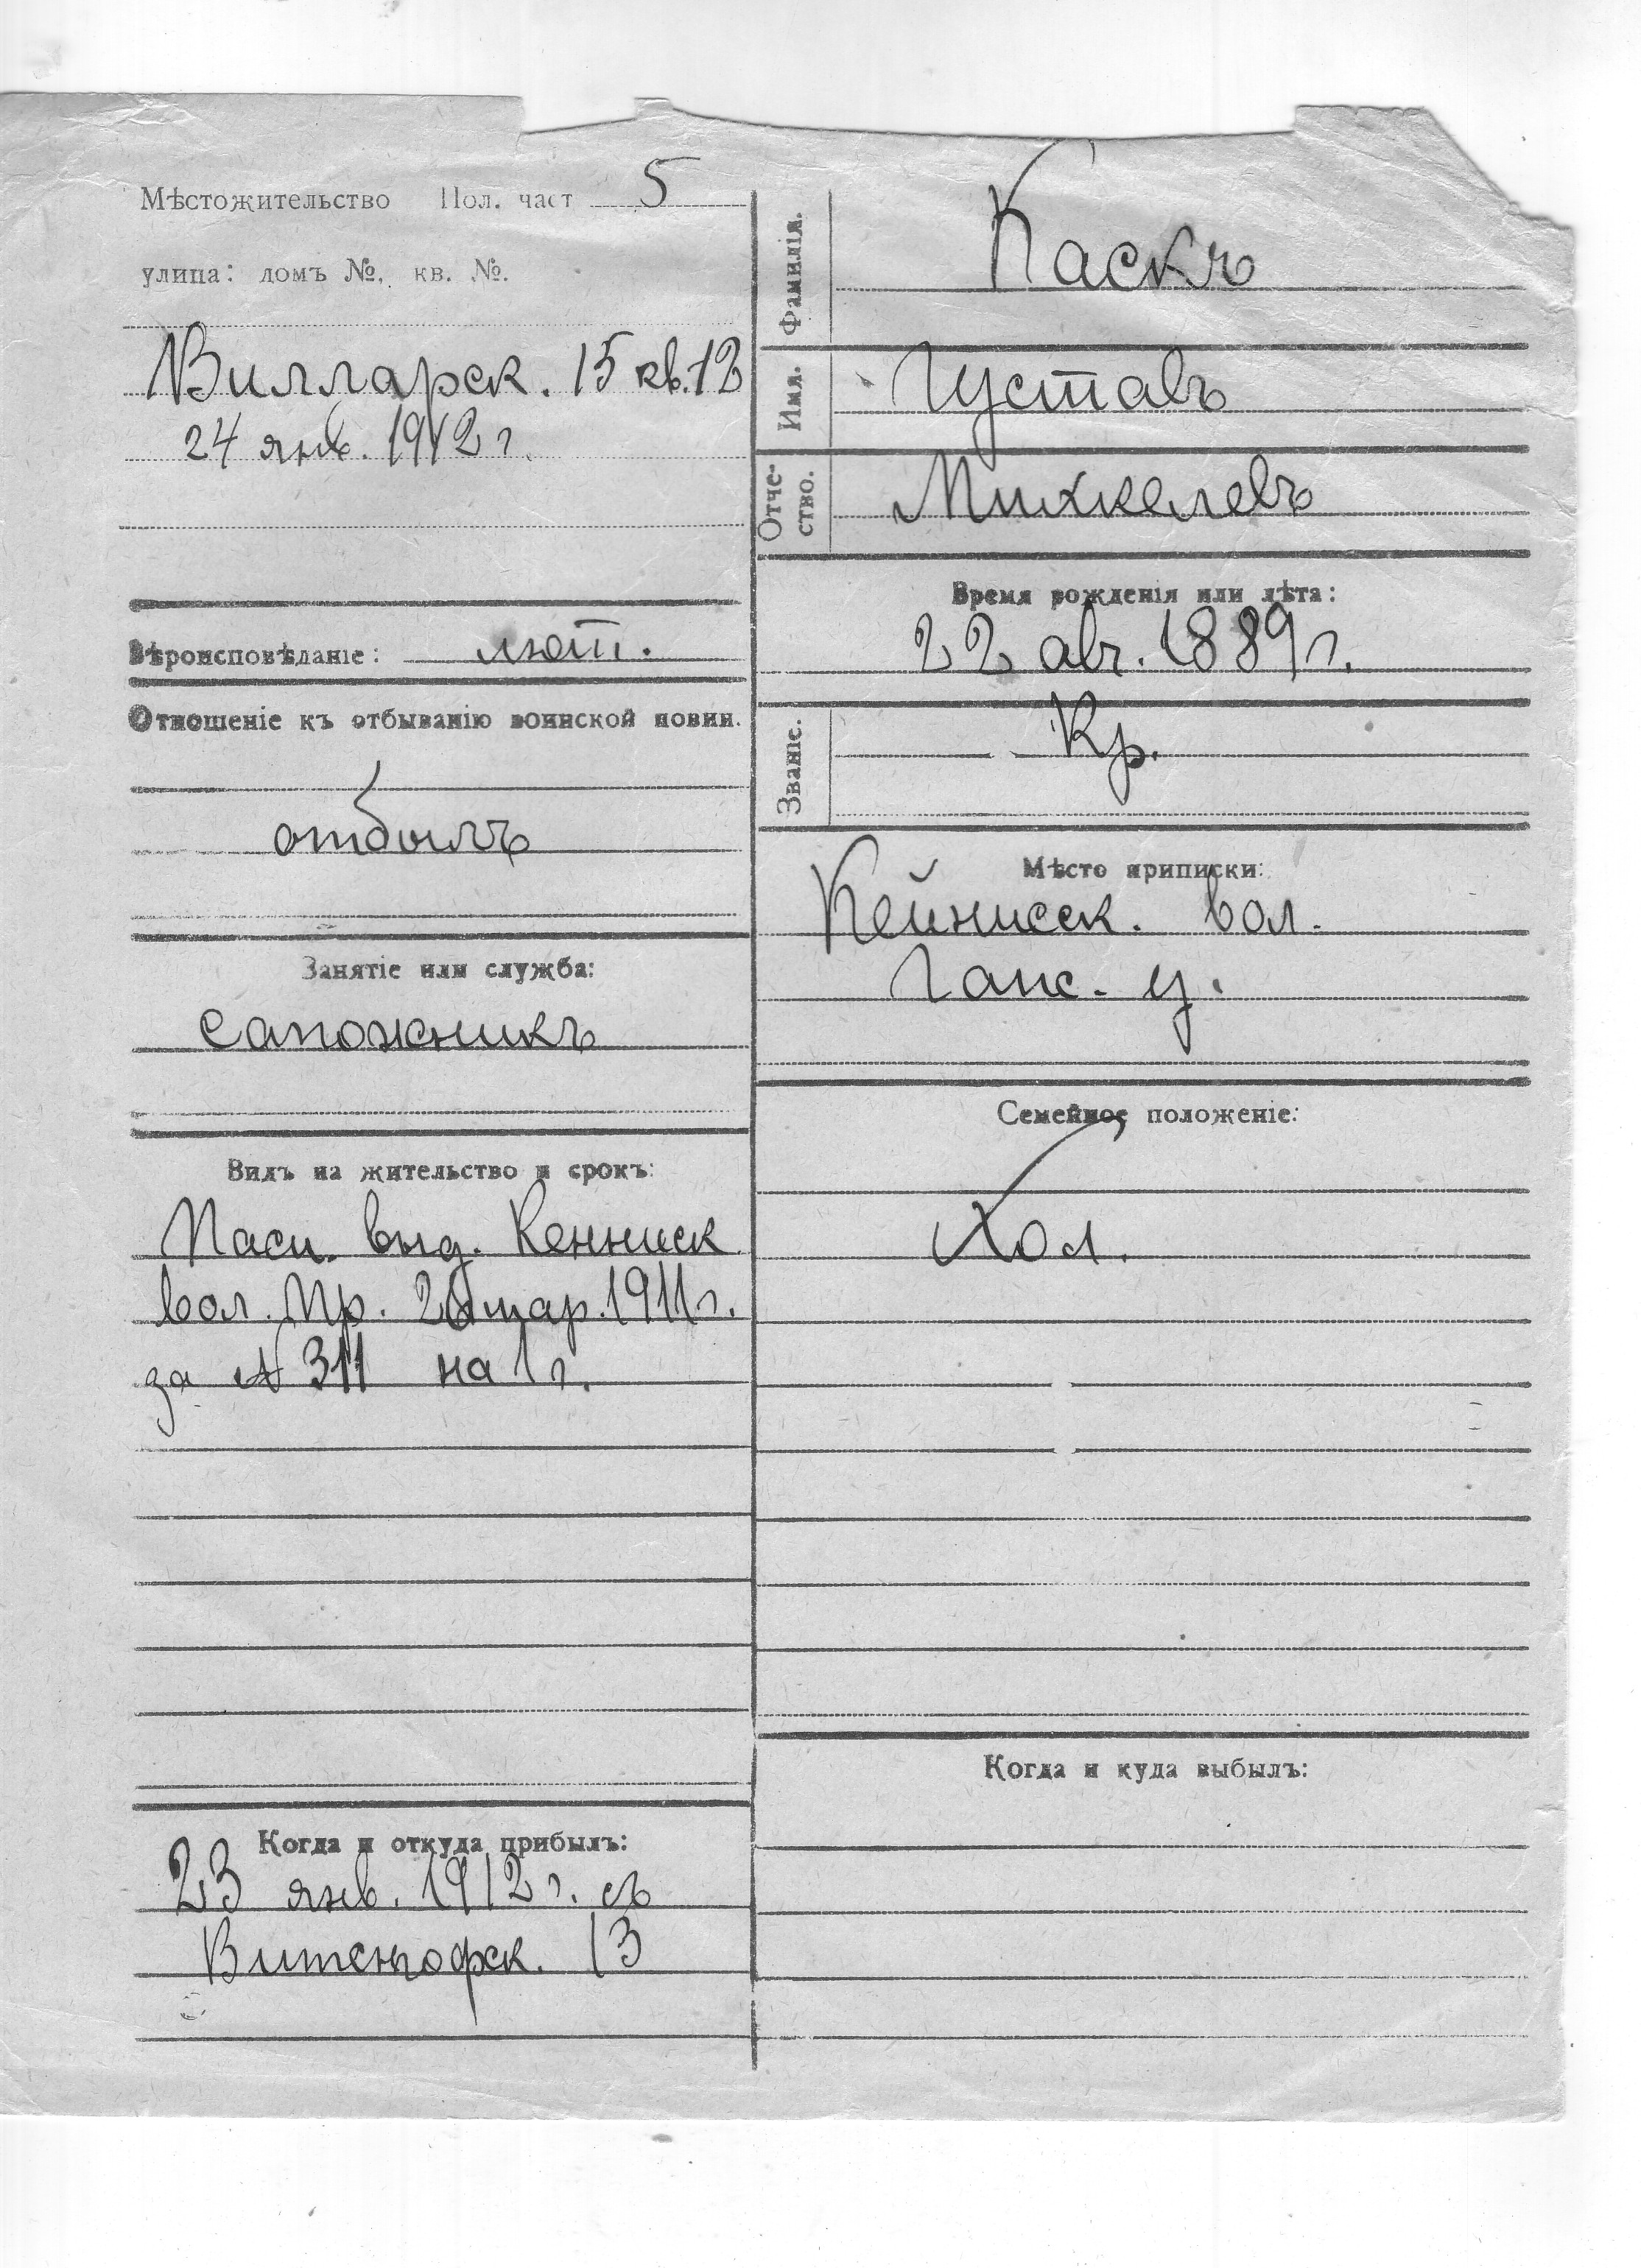 Мѣстожительство Пол. част 5
улица: домъ №, кв. №.
Вилларск. 15 кв. 12
24 янв. 1912 г.
Вѣроисповѣданіе: лют.
Отношеніе къ отбыванію воинской повин.
отбылъ
Занятіе или служба:
сапожникъ
Видъ на жительство и срокъ:
Пасп. выд.
вол. Пр. мар. 1911 г.
за № 311 на 1 г.
Когда и откуда прибылъ:
23 янв. 1912 г. съ
Витенгофск. 13
Фамилія. Каскъ
Имя. Густавъ
Отче-
ство. Михкелевъ
Время рожденія или лѣта:
22 авг. 1889 г.
Званіе. Кр.
Мѣсто приписки:
Кейнисск. вол.
Гапс. у.
Семейное положеніе:
Хол.
Когда и куда выбылъ: